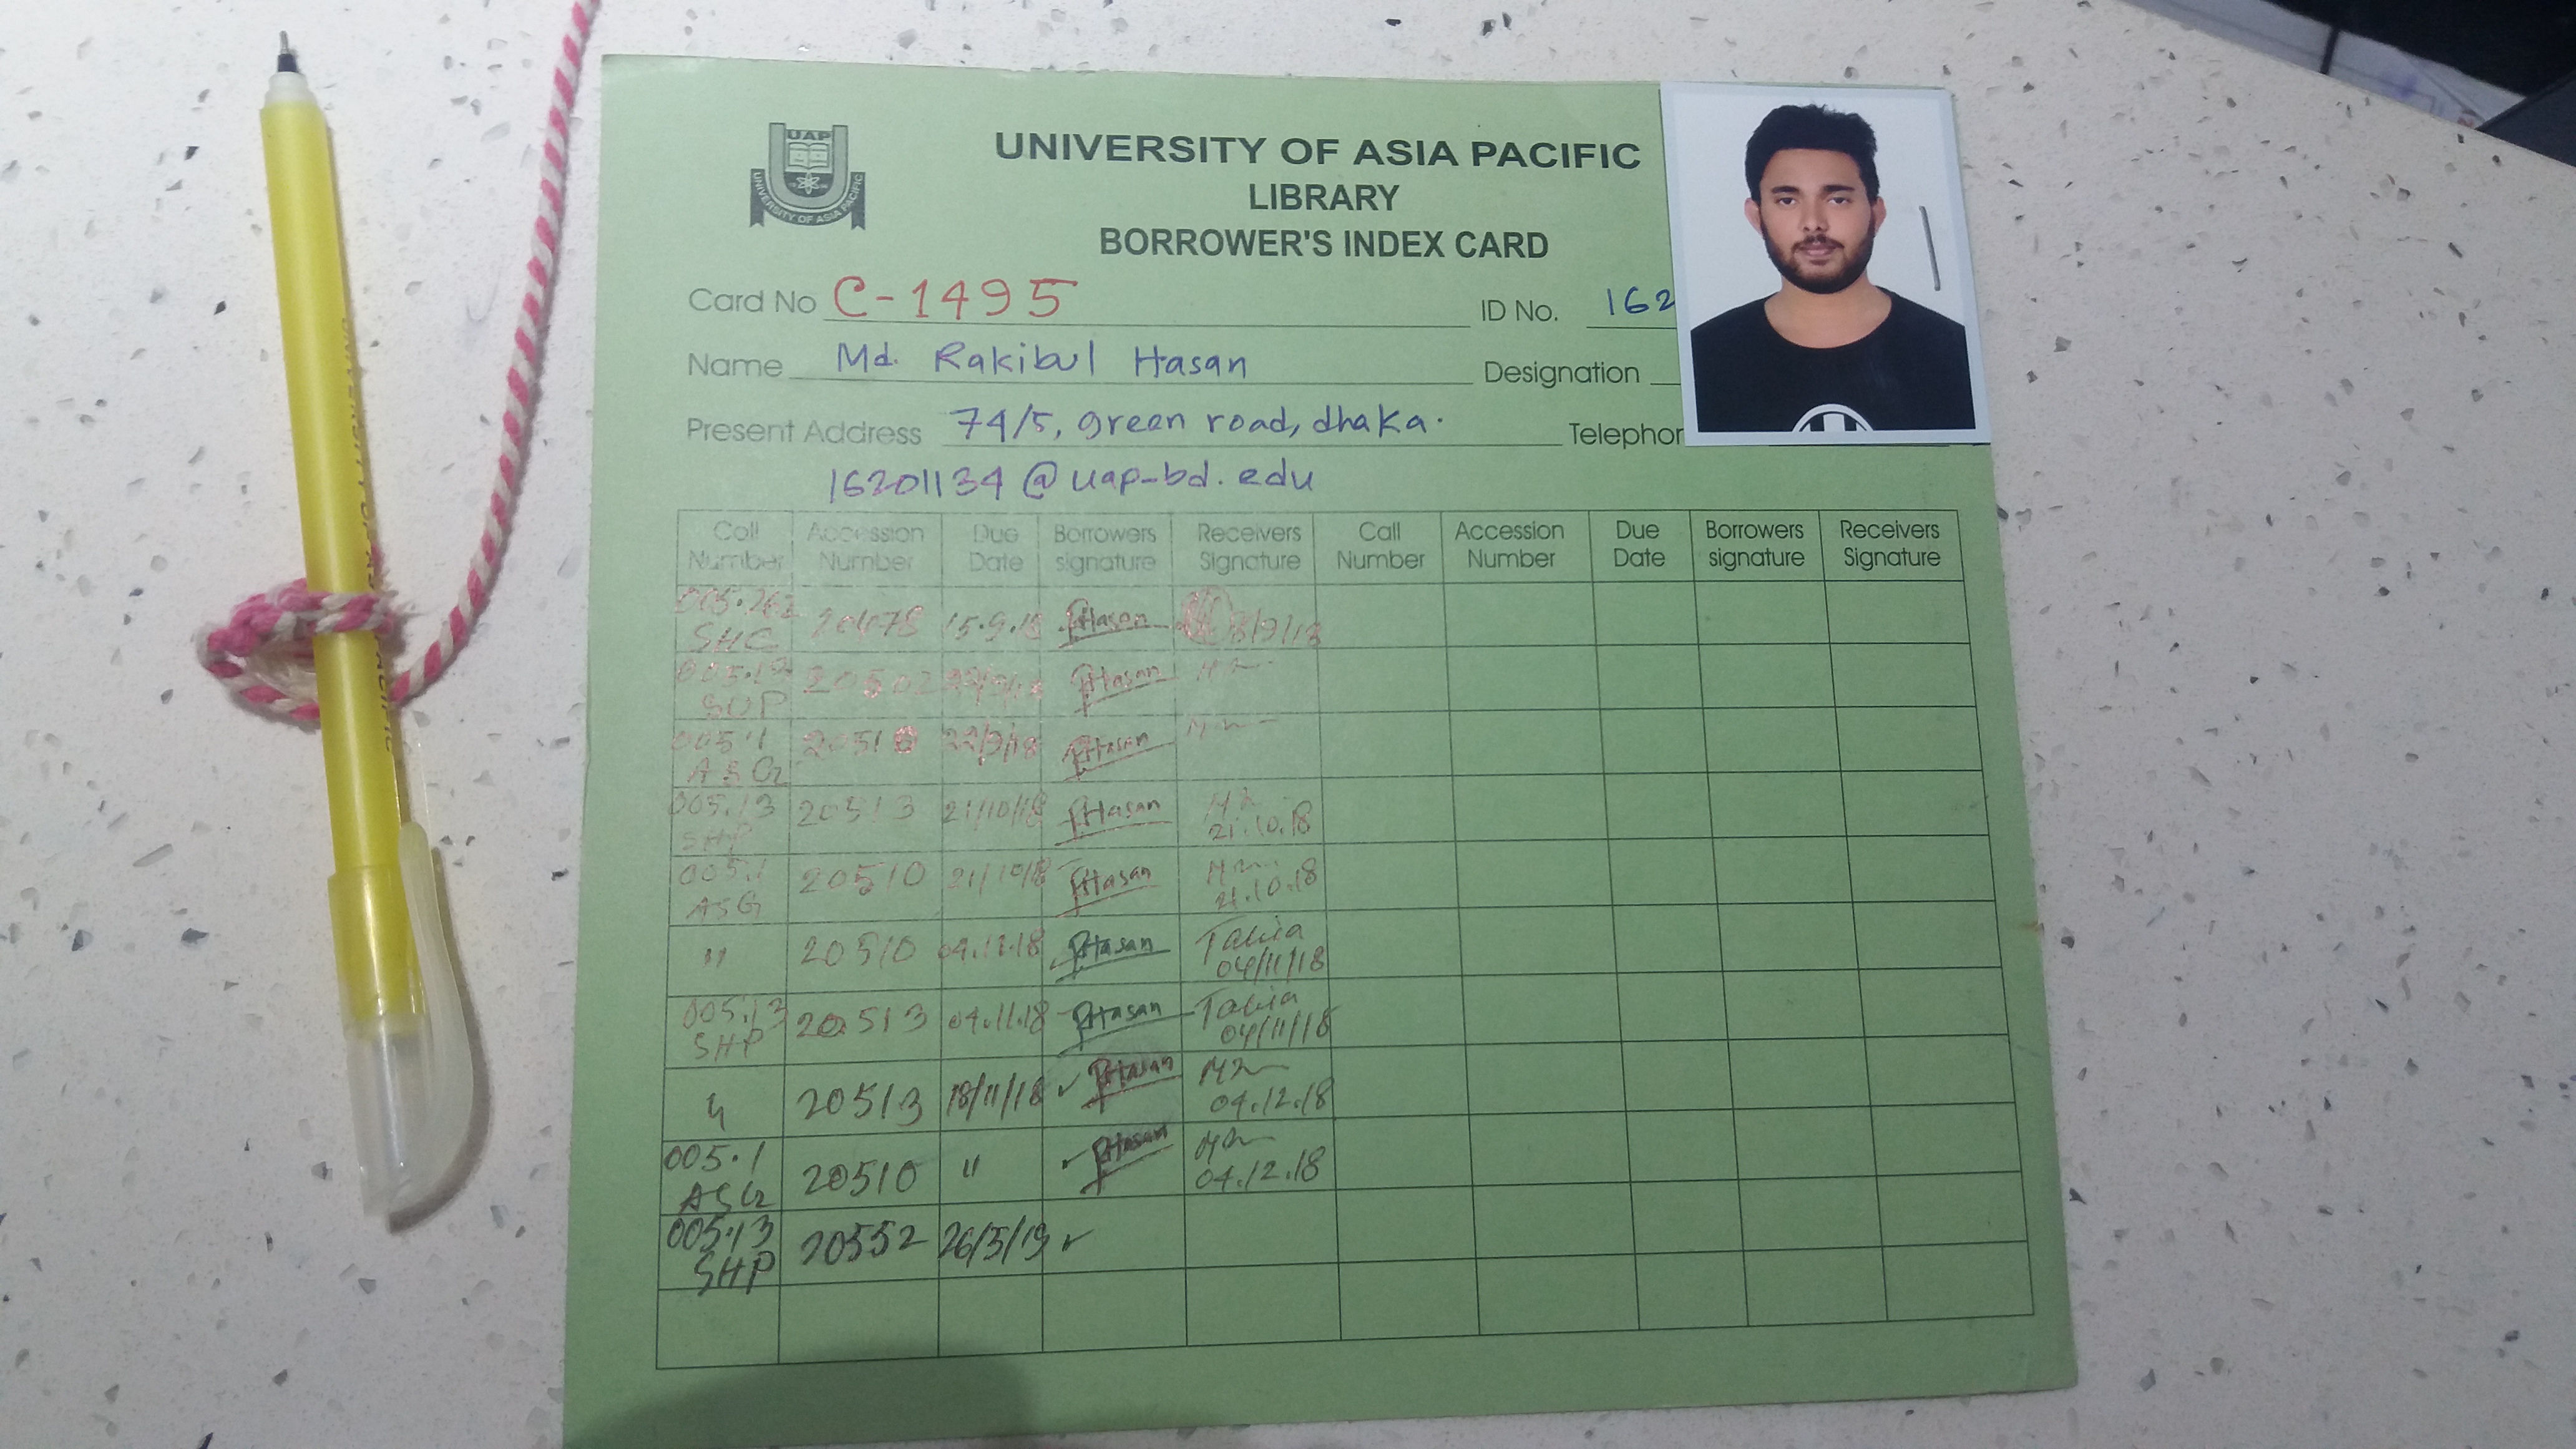 UAP
UNIVERSITY OF ASIA PACIFIC
UNIVERSITY OF ASIA PACIFIC
LIBRARY
BORROWER'S INDEX CARD
Card No C-1495 ID No. 162
Name Md. Rakibul Hasan Designation
Present Address 74/5, green road, dhaka. Telephon
16201134@uap-bd.edu
Call Number Accession Number Due Date Borrowers signature Receivers Signature Call Number Accession Number Due Date Borrowers signature Receivers Signature
15.9.18 Hasan
Hasan
005.1 22/9/18 Hasan
005.13 SHP 20513 21/10/18 Hasan 21.10.18
005.1 ASG 20510 21/10/18 Hasan 21.10.18
" 20510 04.12.18 Hasan 04/11/18
005.13 SHP 20513 04.11.18 Hasan 04/11/18
20513 18/11/18 Hasan 04.12.18
005.1 ASG 20510 " Hasan 04.12.18
005.13 SHP 20552 26/5/19